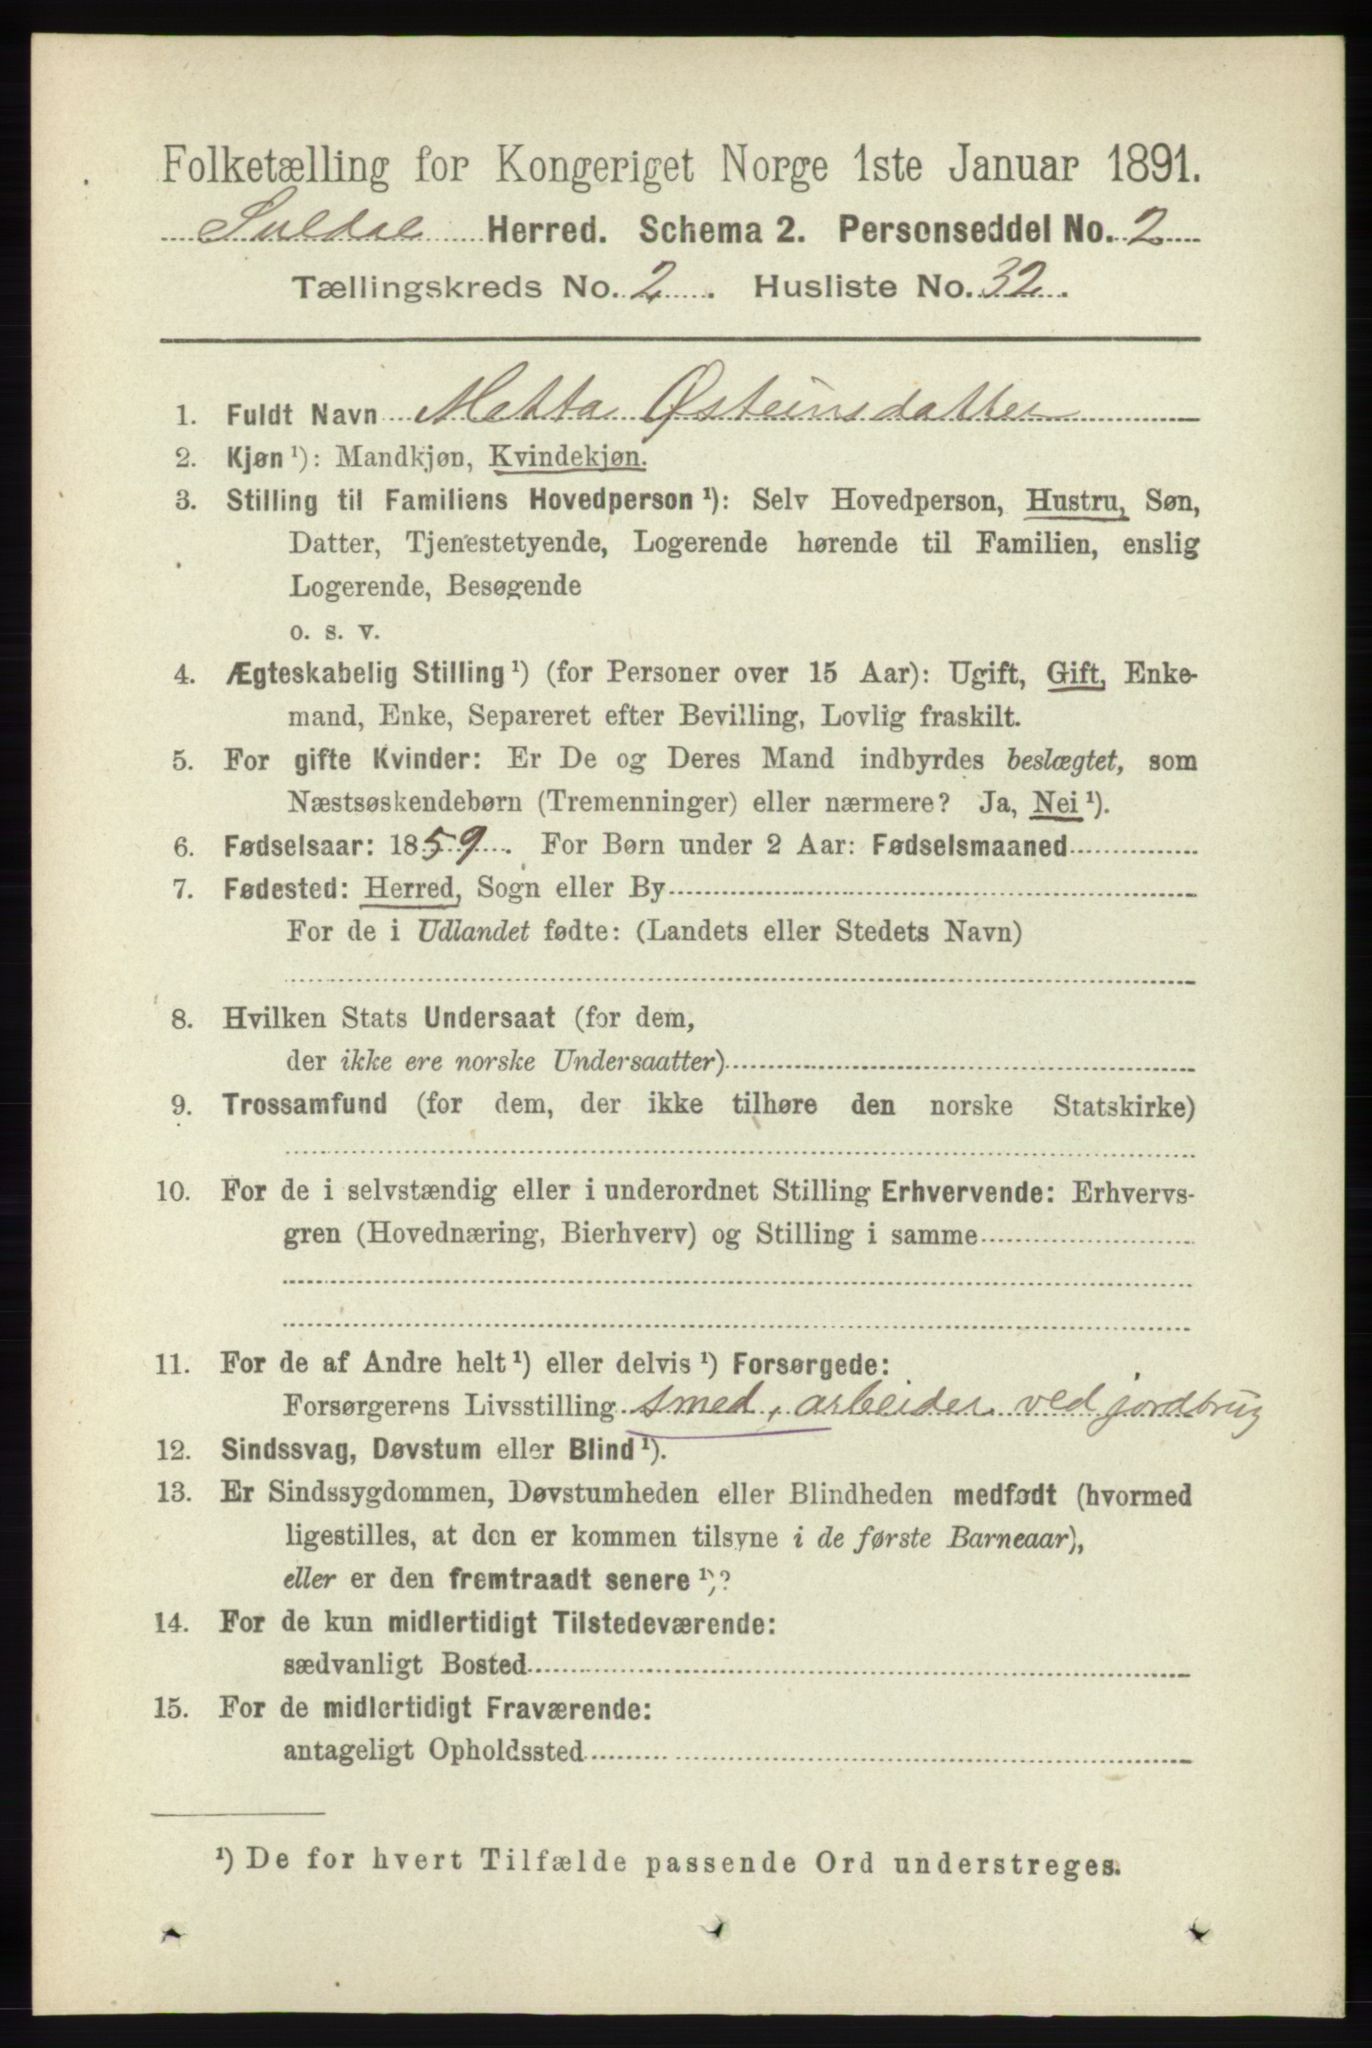 Folketælling for Kongeriget Norge 1ste Januar 1891.
Suldal Herred. Schema 2. Personseddel No. 2
Tællingskreds No. 2. Husliste No. 32.
1. Fuldt Navn Metta Østeinsdatter
2. Kjøn ¹): Mandkjøn, Kvindekjøn.
3. Stilling til Familiens Hovedperson ¹): Selv Hovedperson, Hustru, Søn,
Datter, Tjenestetyende, Logerende hørende til Familien, enslig
Logerende, Besøgende
o. s. v.
4. Ægteskabelig Stilling ¹) (for Personer over 15 Aar): Ugift, Gift, Enke-
mand, Enke, Separeret efter Bevilling, Lovlig fraskilt.
5. For gifte Kvinder: Er De og Deres Mand indbyrdes beslægtet, som
Næstsøskendebørn (Tremenninger) eller nærmere? Ja, Nei ¹).
6. Fødselsaar: 1859. For Børn under 2 Aar: Fødselsmaaned
7. Fødested: Herred, Sogn eller By
For de i Udlandet fødte: (Landets eller Stedets Navn)
8. Hvilken Stats Undersaat (for dem,
der ikke ere norske Undersaatter)
9. Trossamfund (for dem, der ikke tilhøre den norske Statskirke)
10. For de i selvstændig eller i underordnet Stilling Erhvervende: Erhvervs-
gren (Hovednæring, Bierhverv) og Stilling i samme
11. For de af Andre helt ¹) eller delvis ¹) Forsørgede:
Forsørgerens Livsstilling smed, arbeider ved jordbrug
12. Sindssvag, Døvstum eller Blind ¹).
13. Er Sindssygdommen, Døvstumheden eller Blindheden medfødt (hvormed
ligestilles, at den er kommen tilsyne i de første Barneaar),
eller er den fremtraadt senere ¹)?
14. For de kun midlertidigt Tilstedeværende:
sædvanligt Bosted
15. For de midlertidigt Fraværende:
antageligt Opholdssted
¹) De for hvert Tilfælde passende Ord understreges.